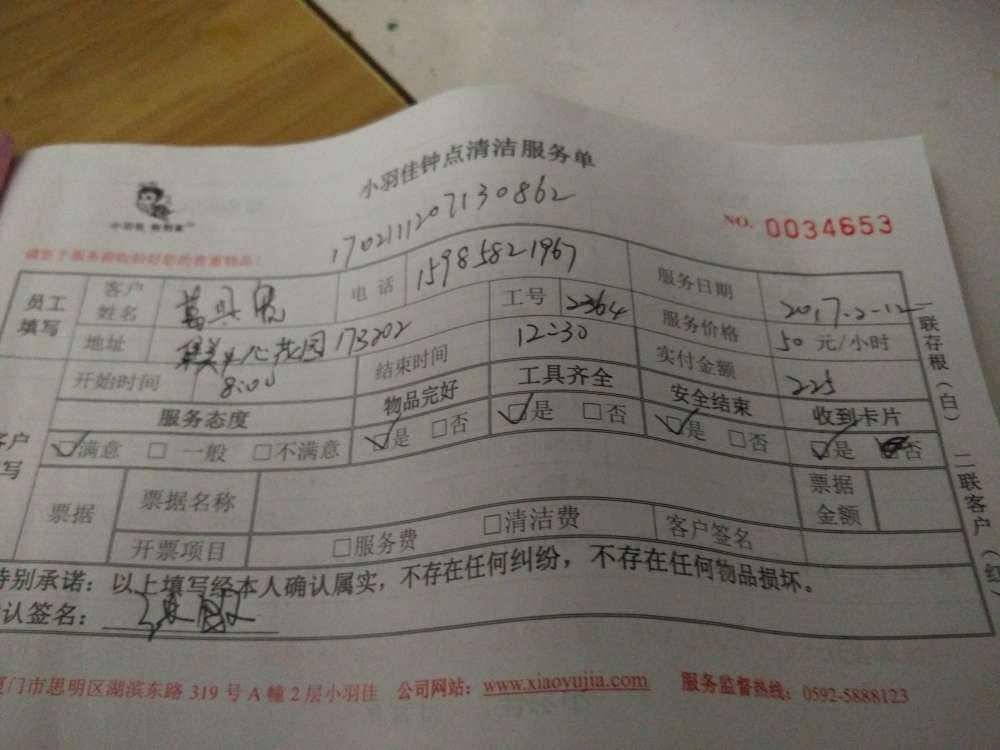 小羽佳钟点清洁服务单
1702111207130862
NO. 0034653
员工填写 客户姓名 电话 15985821967 服务日期 2017.2-12
地址 中心花园173202 工号 2364 服务价格 50 元/小时
开始时间 8:00 结束时间 12:30 实付金额 225
服务态度 物品完好 工具齐全 安全结束 收到卡片
☑满意 □一般 □不满意 ☑是 □否 ☑是 □否 ☑是 □否 ☑是 否
票据 票据名称 票据金额
开票项目 □服务费 □清洁费 客户签名
特别承诺：以上填写经本人确认属实，不存在任何纠纷，不存在任何物品损坏。
认签名：
厦门市思明区湖滨东路 319 号 A 幢 2 层小羽佳 公司网站：www.xiaoyujia.com 服务监督热线：0592-5888123
一联存根（白） 二联客户（红）